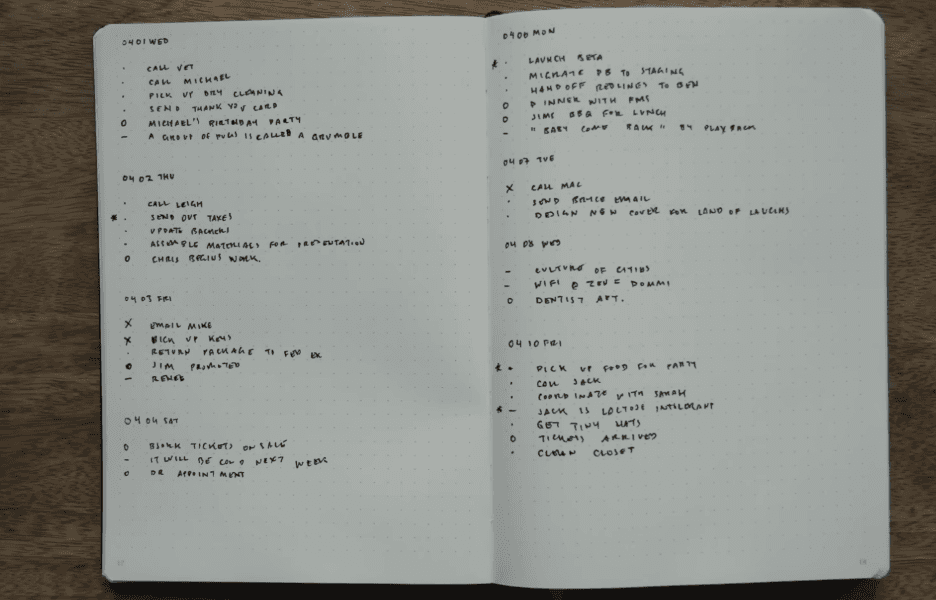 04 01 WED
· CALL VET
· CALL MICHAEL
· PICK UP DRY CLEANING
· SEND THANK YOU CARD
O MICHAEL'S BIRTHDAY PARTY
– A GROUP OF PUGS IS CALLED A GRUMBLE
04 02 THU
· CALL LEIGH
* · SEND OUT TAXES
· UPDATE BACKERS
· ASSEMBLE MATERIALS FOR PRESENTATION
O CHRIS BEGINS WORK.
04 03 FRI
X EMAIL MIKE
X PICK UP KEYS
· RETURN PACKAGE TO FED EX
O JIM PROMOTED
– RENEE
04 04 SAT
O BJORK TICKETS ON SALE
– IT WILL BE COLD NEXT WEEK
O DR APPOINTMENT
04 06 MON
* · LAUNCH BETA
· MIGRATE DB TO STAGING
· HAND OFF REDLINES TO BEN
O DINNER WITH PMS
O JIMS BBQ FOR LUNCH
– "BABY COME BACK" BY PLAYBACK
04 07 TUE
X CALL MAC
· SEND BRYCE EMAIL
· DESIGN NEW COVER FOR LAND OF LAUGHS
04 08 WED
– CULTURE OF CITIES
– WIFI @
O DENTIST APT.
04 10 FRI
* · PICK UP FOOD FOR PARTY
· CALL JACK
· COORDINATE WITH SARAH
* – JACK IS LACTOSE INTOLERANT
· GET TINY HATS
O TICKETS ARRIVED
· CLEAN CLOSET